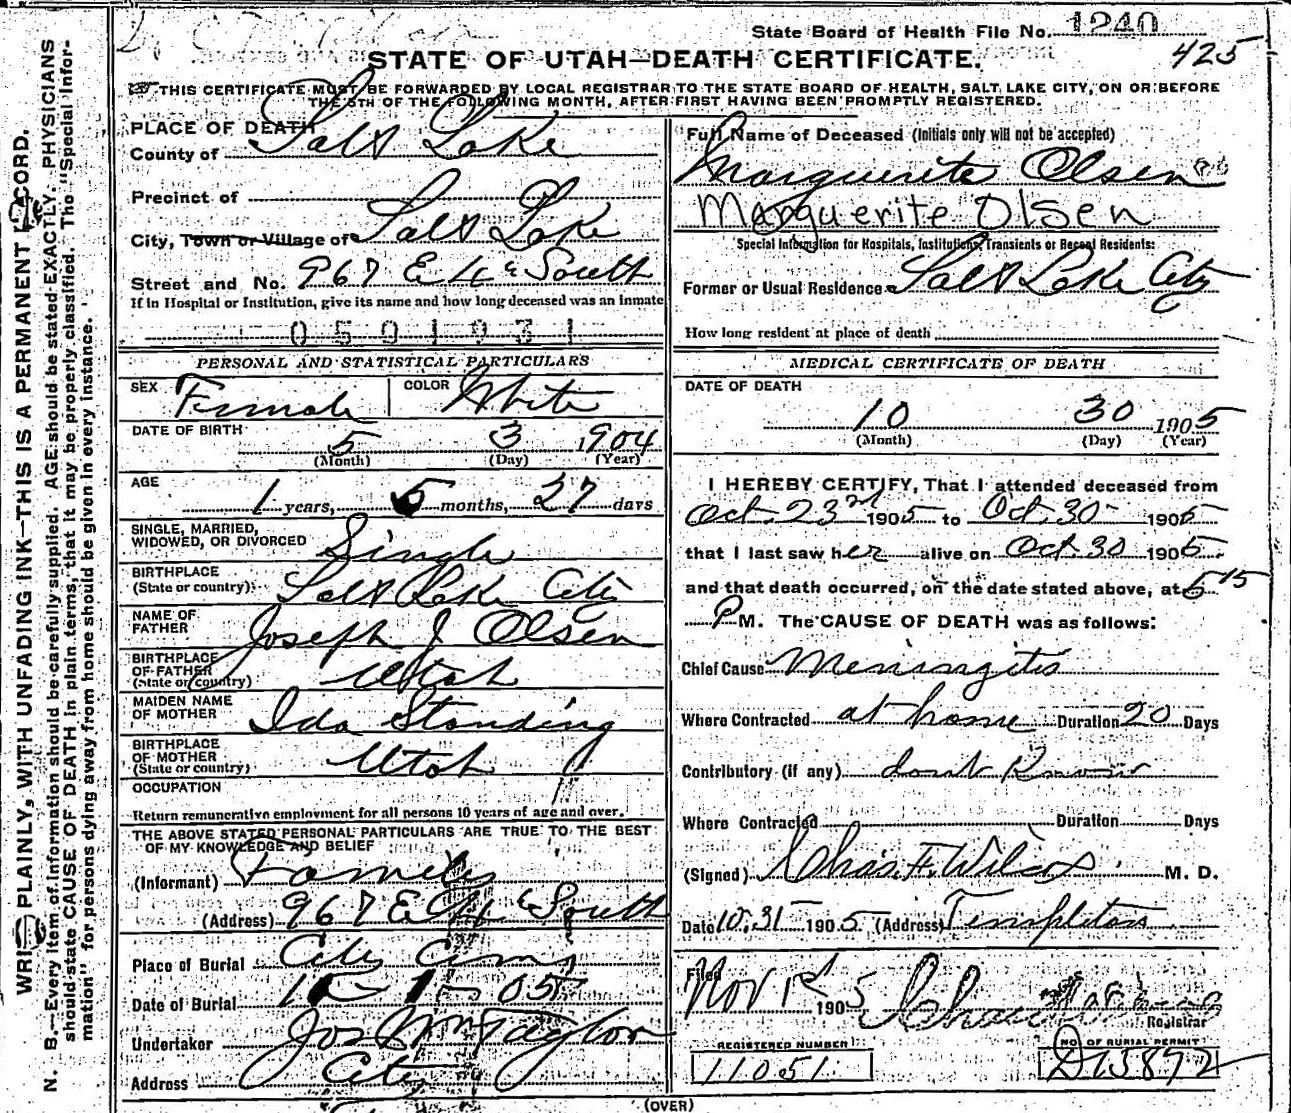 State Board of Health File No. 1240
425
STATE OF UTAH—DEATH CERTIFICATE.
THIS CERTIFICATE MUST BE FORWARDED BY LOCAL REGISTRAR TO THE STATE BOARD OF HEALTH, SALT LAKE CITY, ON OR BEFORE
THE 5TH OF THE FOLLOWING MONTH, AFTER FIRST HAVING BEEN PROMPTLY REGISTERED.
WRITE PLAINLY, WITH UNFADING INK—THIS IS A PERMANENT RECORD.
N. B.—Every item of information should be carefully supplied. AGE should be stated EXACTLY. PHYSICIANS
should state CAUSE OF DEATH in plain terms, that it may be properly classified. The "Special Infor-
mation" for persons dying away from home should be given in every instance.
PLACE OF DEATH
County of Salt Lake
Precinct of
City, Town or Village of Salt Lake
Street and No. 967 E 4 South
If in Hospital or Institution, give its name and how long deceased was an inmate
0501931
PERSONAL AND STATISTICAL PARTICULARS
SEX Female COLOR White
DATE OF BIRTH
5 3 1904
(Month) (Day) (Year)
AGE
1 years, 5 months, 27 days
SINGLE, MARRIED,
WIDOWED, OR DIVORCED Single
BIRTHPLACE
(State or country) Salt Lake City
NAME OF
FATHER Joseph J Olsen
BIRTHPLACE
OF FATHER
(State or country) Utah
MAIDEN NAME
OF MOTHER Ida Standing
BIRTHPLACE
OF MOTHER
(State or country) Utah
OCCUPATION
Return remunerative employment for all persons 10 years of age and over.
THE ABOVE STATED PERSONAL PARTICULARS ARE TRUE TO THE BEST
OF MY KNOWLEDGE AND BELIEF
(Informant) Family
(Address) 967 E 4 South
Place of Burial City Cem
Date of Burial 11-1-05
Undertaker Jos Wm Taylor
Address City
Full Name of Deceased (Initials only will not be accepted)
Marguerite Olsen
Marguerite Olsen
Special Information for Hospitals, Institutions, Transients or Recent Residents:
Former or Usual Residence Salt Lake City
How long resident at place of death
MEDICAL CERTIFICATE OF DEATH
DATE OF DEATH
10 30 1905
(Month) (Day) (Year)
I HEREBY CERTIFY, That I attended deceased from
Oct. 23rd 1905 to Oct. 30 1905
that I last saw her alive on Oct 30 1905
and that death occurred, on the date stated above, at 5 15
P M. The CAUSE OF DEATH was as follows:
Chief Cause Meningitis
Where Contracted at home Duration 20 Days
Contributory (if any) dont Know
Where Contracted Duration Days
(Signed) Chas. F. Wilcox M. D.
Date 10.31 1905 (Address) Templeton
Filed Nov 1st 1905
Registrar
REGISTERED NUMBER
11051
NO OF BURIAL PERMIT
D13892
(OVER)